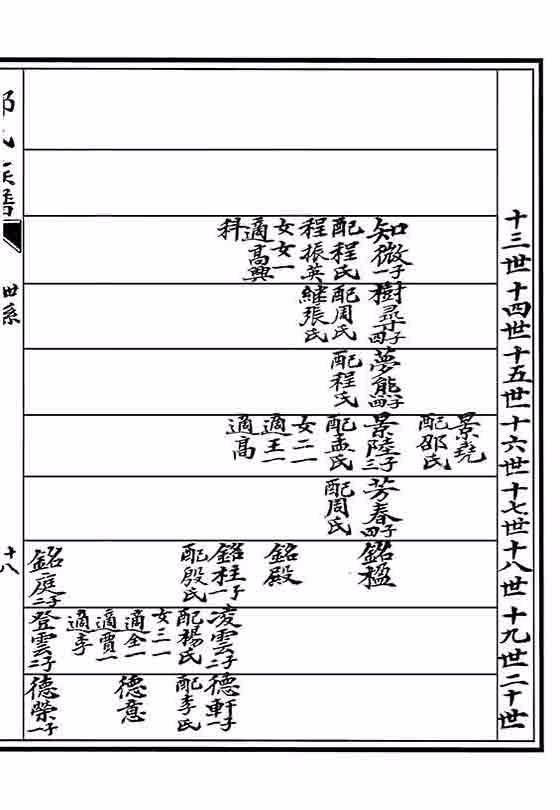 十三世
知微一子
配程氏
程振英
女女一
適高興
科
十四世
樹尋四子
配周氏
繼張氏
十五世
夢熊四子
配程氏
十六世
景堯
配邵氏
景陸三子
配孟氏
女二一
適王一
適高
十七世
芳春四子
配周氏
十八世
銘楹
銘殿
銘柱一子
配殷氏
銘庭二子
十九世
凌雲二子
配楊氏
女三一
適仝一
適賈一
適李
登雲二子
二十世
德軒一子
配李氏
德意
德榮一子
族譜
世系
十八